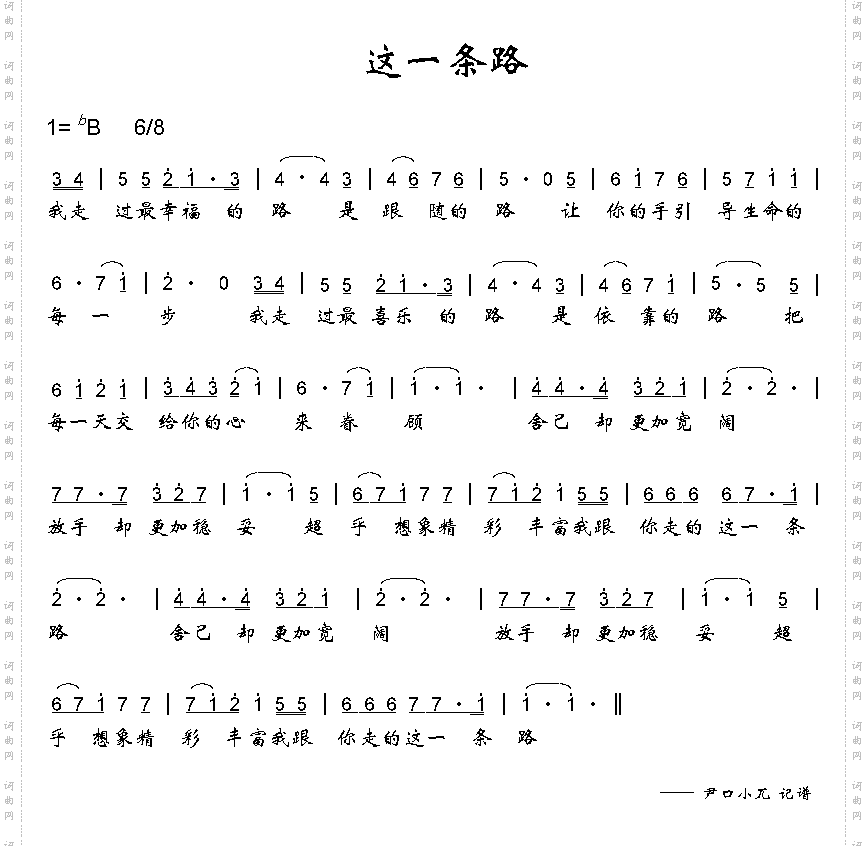 这一条路
1= bB 6/8
3 4 | 5 5 2 1 · 3 | 4 · 4 3 | 4 6 7 6 | 5 · 0 5 | 6 1 7 6 | 5 7 1 1 |
我走 过最幸福 的 路 是 跟 随的 路 让 你的手引 导生命的
6 · 7 1 | 2 · 0 3 4 | 5 5 2 1 · 3 | 4 · 4 3 | 4 6 7 1 | 5 · 5 5 |
每 一 步 我走 过最 喜乐 的 路 是 依 靠的 路 把
6 1 2 1 | 3 4 3 2 1 | 6 · 7 1 | 1 · 1 · | 4 4 · 4 3 2 1 | 2 · 2 · |
每一天交 给你的心 来 眷 顾 舍己 却 更加宽 阔
7 7 · 7 3 2 7 | 1 · 1 5 | 6 7 1 7 7 | 7 1 2 1 5 5 | 6 6 6 6 7 · 1 |
放手 却 更加稳 妥 超 乎 想象精 彩 丰富我跟 你走的 这一 条
2 · 2 · | 4 4 · 4 3 2 1 | 2 · 2 · | 7 7 · 7 3 2 7 | 1 · 1 5 |
路 舍己 却 更加宽 阔 放手 却 更加稳 妥 超
6 7 1 7 7 | 7 1 2 1 5 5 | 6 6 6 7 7 · 1 | 1 · 1 · ‖
乎 想象精 彩 丰富我跟 你走的这一 条 路
—— 尹口小兀 记谱
词曲网